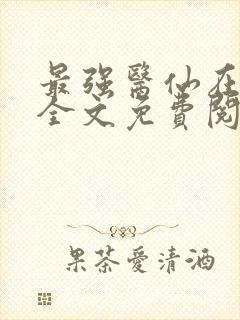 最强醫仙在
全文免費閱
果茶愛清酒